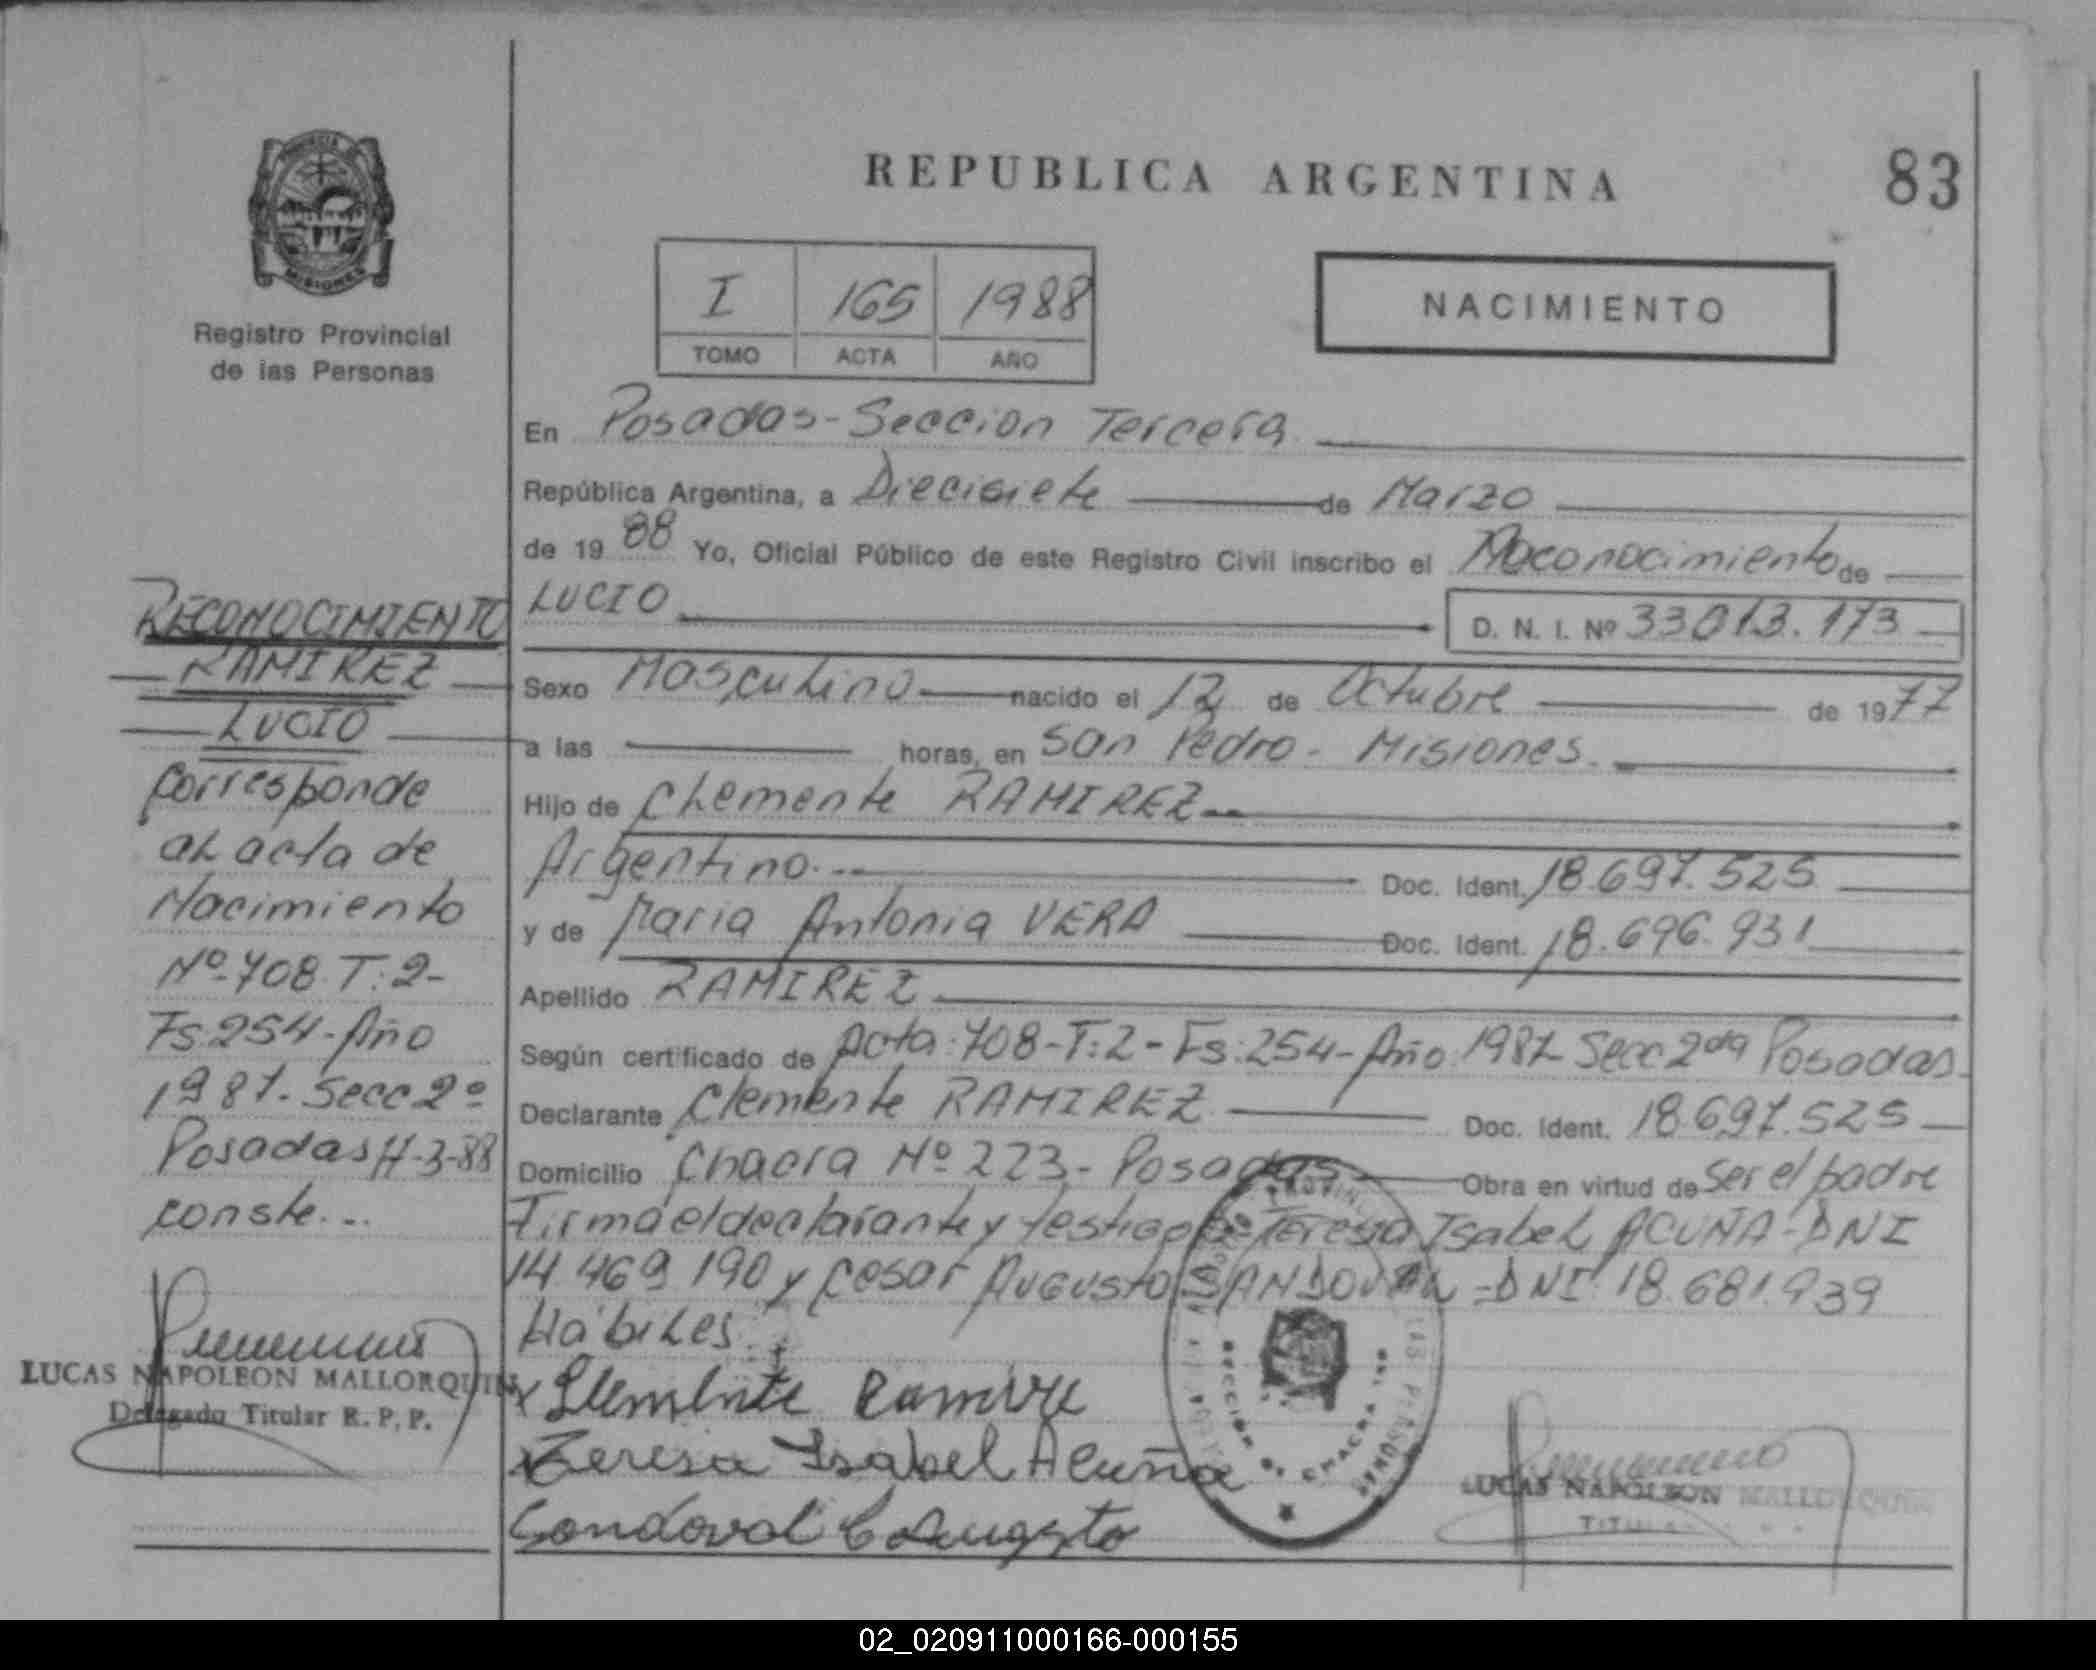 REPUBLICA ARGENTINA
83
MISIONES
Registro Provincial
de las Personas
I 165 1988
TOMO ACTA AÑO
NACIMIENTO
En Posadas-Seccion Tercera
República Argentina, a Diecisiete de Marzo
de 19 88 Yo, Oficial Público de este Registro Civil inscribo el Reconocimiento de
LUCIO D. N. I. Nº 33 013.173
Sexo Masculino nacido el 12 de Octubre de 1977
a las horas, en San Pedro - Misiones.
Hijo de Clemente RAMIREZ
Argentino. Doc. Ident. 18.697.525
y de Maria Antonia VERA Doc. Ident. 18.696.931
Apellido RAMIREZ
Según certificado de Acta:708-T:2-Fs:254-Año:1987 Secc 2da Posadas
Declarante Clemente RAMIREZ Doc. Ident. 18.697.525
Domicilio Chacra Nº 223- Posadas Obra en virtud de Ser el padre
Firma el declarante y testigos Teresa Isabel ACUÑA-DNI
14 469 190 y Cesar Augusto SANDOVAL-DNI 18.681.939
Hábiles.
Teresa Isabel Acuña
Sandoval C Augsto
LUCAS NAPOLEON MALLORQUIN
RECONOCIMIENTO
RAMIREZ
LUCIO
Corresponde
al acta de
Nacimiento
Nº-708 T:2-
Fs 254-Año
1987. Secc 2º
Posadas 17-3-88
conste...
LUCAS NAPOLEON MALLORQUIN
Delegado Titular R.P.P.
02_020911000166-000155